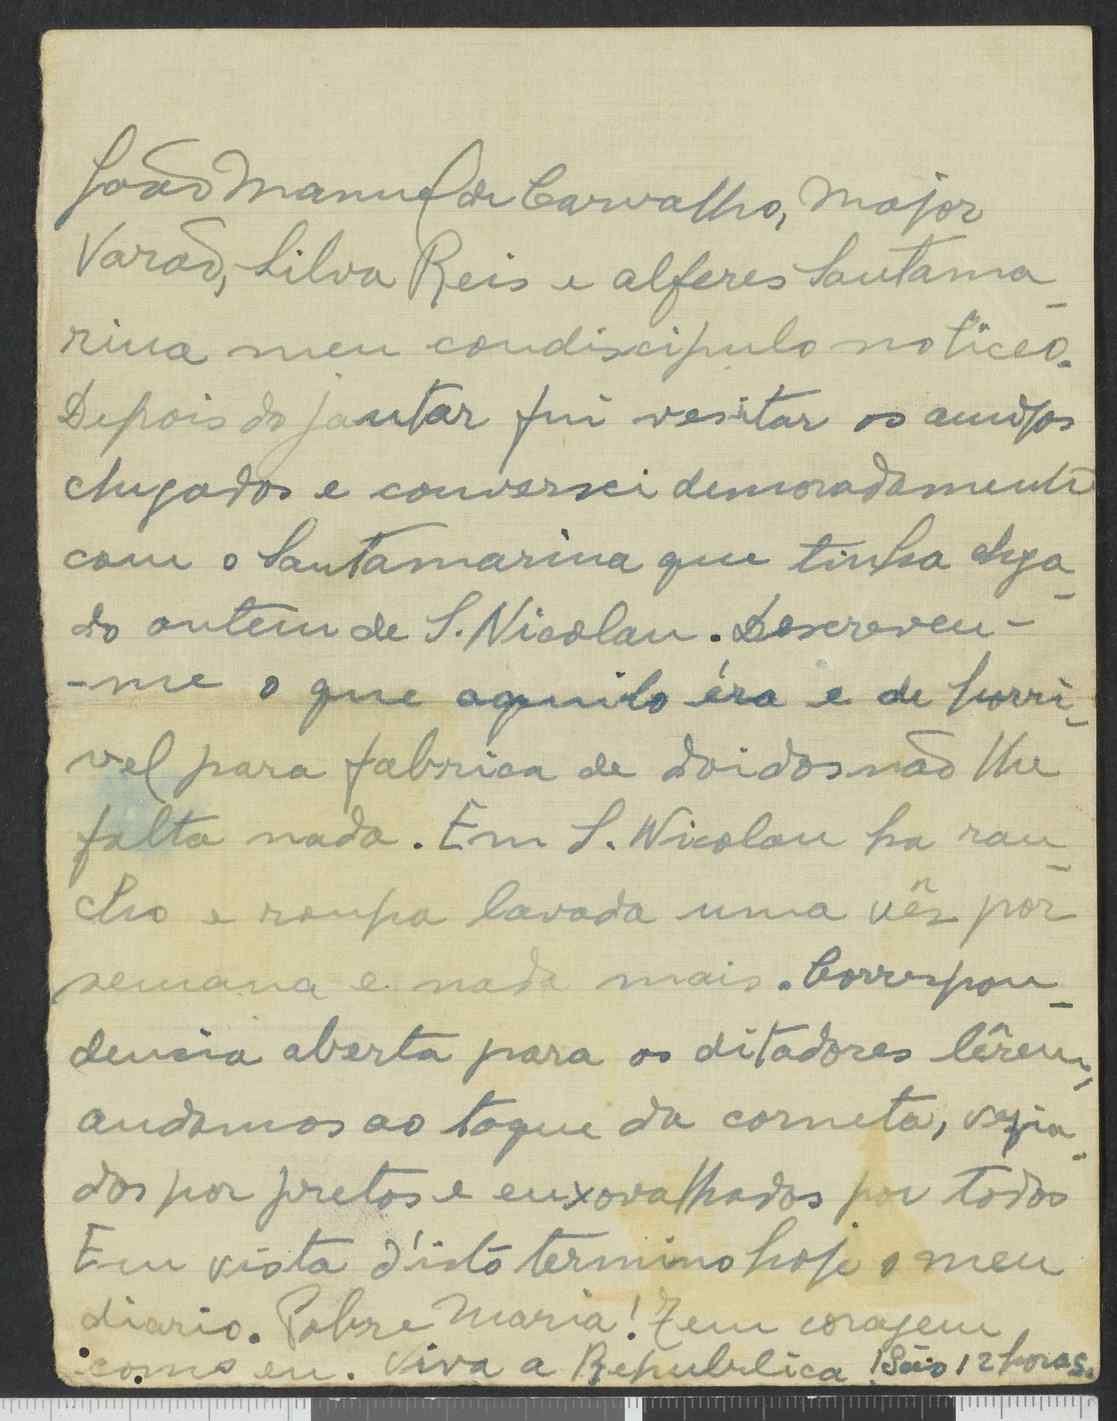 João Manuel de Carvalho, Major
Varão, Silva Reis e alferes Santama-
rina meu condiscipulo no liceo.
Depois do jantar fui vesitar os amigos
chegados e conversei demoradamente
com o Santamarina que tinha chega-
do ontem de S. Nicolau. Descreveu-
-me o que aquilo éra e de horri-
vel para fabrica de doidos não lhe
falta nada. Em S. Nicolau ha ran-
cho e roupa lavada uma vês pór
semana e nada mais. Correspon-
dencia aberta para os ditadores lêrem,
andamos ao toque da corneta, vigia-
dos por pretos e enxovalhados por todos
Em vista d'isto termino hoje o meu
diario. Pobre Maria! Tem coragem
como eu. Viva a Republica! São 12 horas.